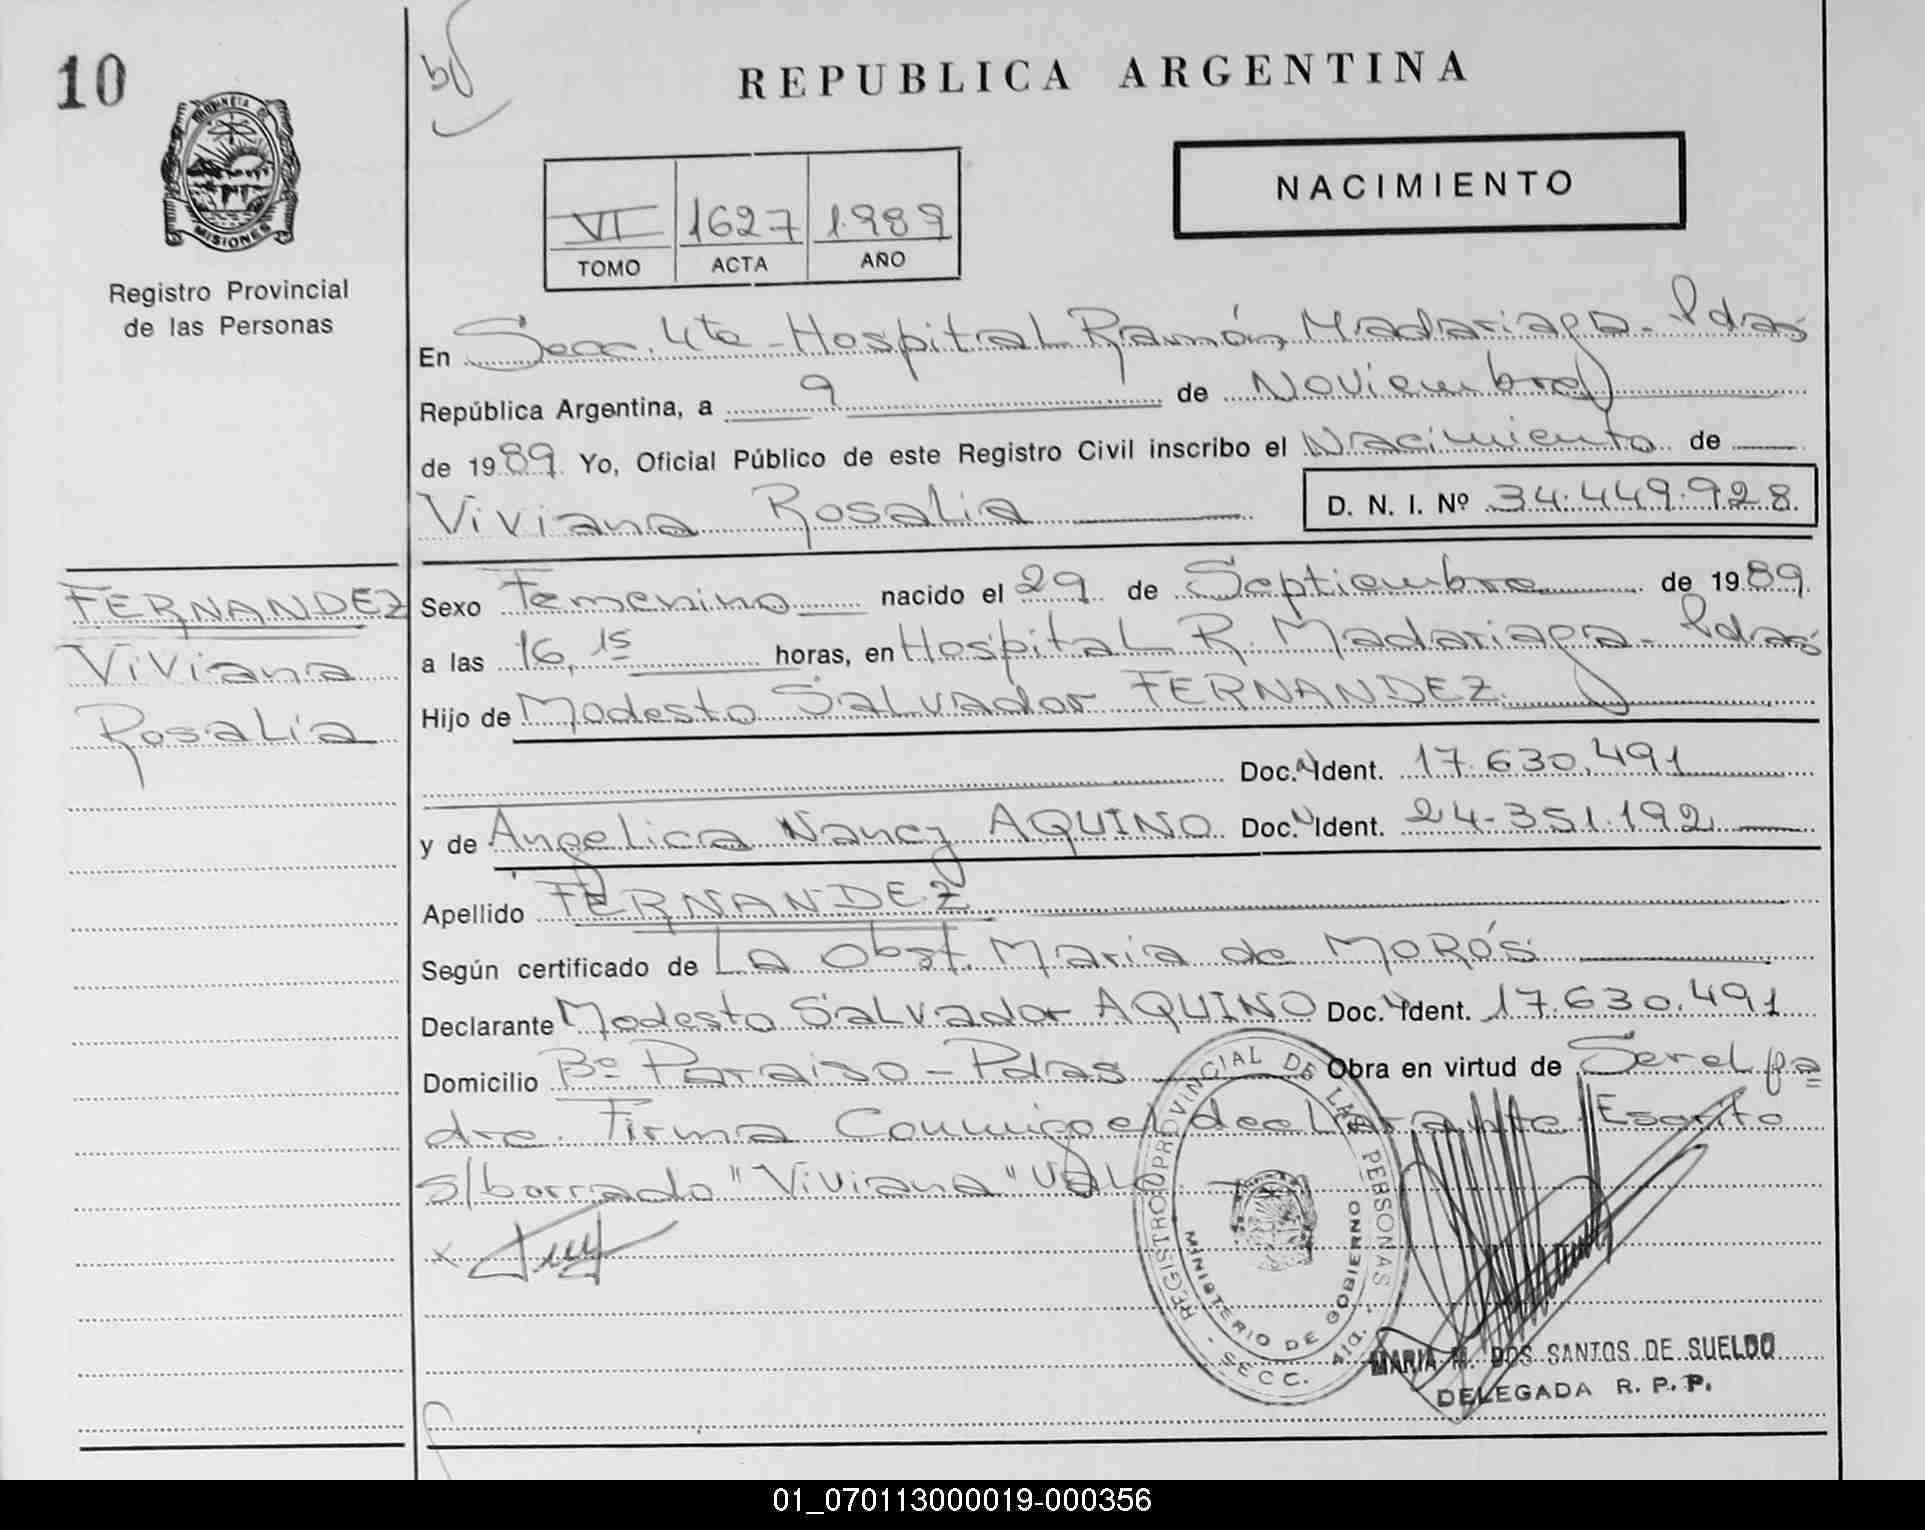 10
REPUBLICA ARGENTINA
NACIMIENTO
VI 1627 1989
TOMO ACTA AÑO
PROVINCIA DE
MISIONES
Registro Provincial
de las Personas
En Secc. 4ta - Hospital Ramón Madariaga - Pdas
República Argentina, a 9 de Noviembre
de 1989 Yo, Oficial Público de este Registro Civil inscribo el Nacimiento de
Viviana Rosalia D. N. I. Nº 34.449.928.
FERNANDEZ
Viviana
Rosalia
Sexo Femenino nacido el 29 de Septiembre de 1989
a las 16,15 horas, en Hospital R. Madariaga - Pdas
Hijo de Modesto Salvador FERNANDEZ
Doc. N Ident. 17.630.491
y de Angelica Nancy AQUINO Doc. N Ident. 24.351.192
Apellido FERNANDEZ
Según certificado de La Obst. Maria de MORÓS
Declarante Modesto Salvador AQUINO Doc. N Ident. 17.630.491
Domicilio Bº Paraiso - Pdas Obra en virtud de Ser el pa
dre. Firma Conmigo el declarante Escrito
s/borrado "Viviana" Vale
x
REGISTRO PROVINCIAL DE LAS PERSONAS
MINISTERIO DE GOBIERNO
SECC. 4ta.
MARIA M. DOS SANTOS DE SUELDO
DELEGADA R. P. P.
01_070113000019-000356